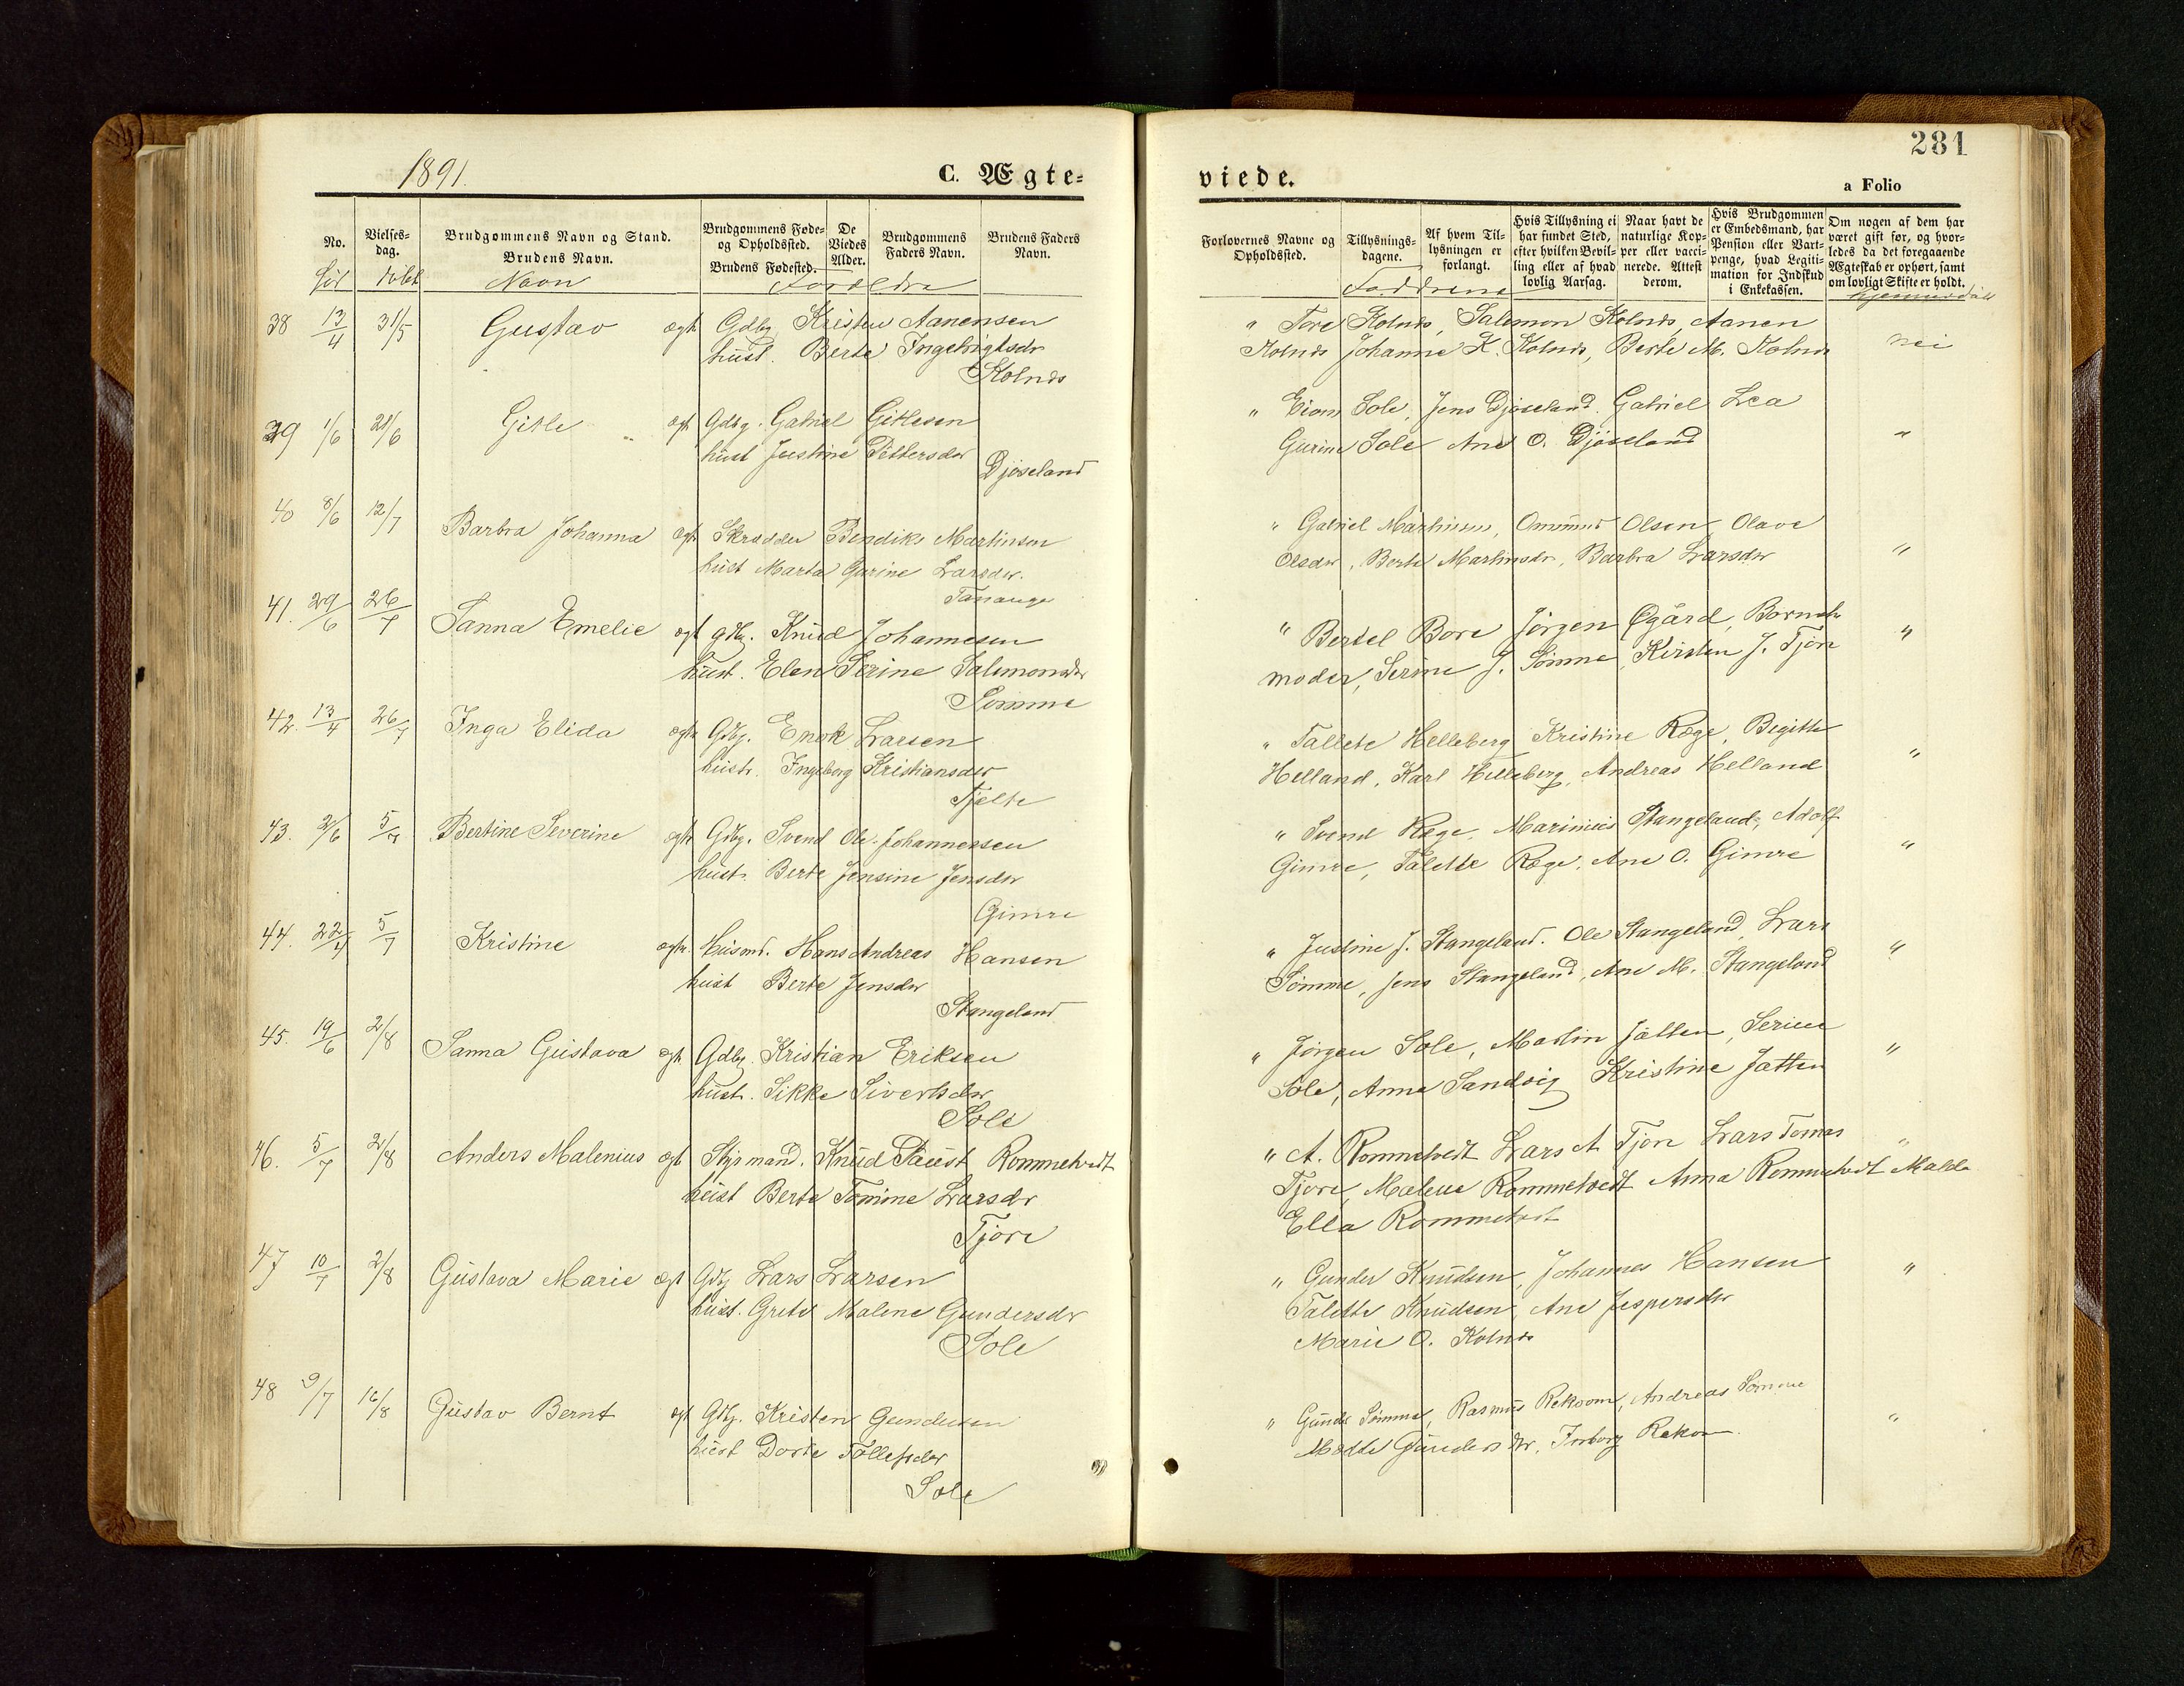 1891.
C. Ægte-
No.
Vielses-
dag.
Brudgommens Navn og Stand.
Brudens Navn.
Brudgommens Føde-
og Opholdssted.
Brudens Fødested.
De
Viedes
Alder.
Brudgommens
Faders Navn.
Brudens Faders
Navn.
Født döbt Navn Forældre
38 13/4 31/5 Gustav ægte Gdbr. Kristen Aanensen
hust. Berte Ingebrigtsdr
Kolnes
39 1/6 21/6 Gitle ægt Gdbg. Gabriel Gitlesen
hust Justine Pittersdr
Djøseland
40 8/6 12/7 Barbra Johanna ægt Skrædder Bendiks Martinsen
hust Marta Gurine Larsdr.
Tananger
41. 29/6 26/7 Sanna Emelie ægt gdbg. Knud Johannesen
hust. Elen Serine Salomonsdr
Sömme
42. 13/4 26/7 Inga Elida ægte Gdbg. Enok Larsen
hustr. Ingeborg Kristiansdr
Tjelte
43. 2/6 5/7 Bertine Severine ægte Gdbg. Svend Ole Johannessen
hust. Berte Jensine Jensdr
Gimre
44. 22/4 5/7 Kristine ægte. Husmd. Hans Andreas Hansen
hust Berte Jensdr
Stangeland
45. 19/6 2/8 Sanna Gustava ægt. Gdbg. Kristian Eriksen
hust. Sikke Sivertsdr
Sole
46. 5/7 2/8 Anders Malenius ægt Styrmand. Knud Faust Rommetvedt
hust Berte Tomine Larsdr
Tjore
47 10/7 2/8 Gustava Marie ægt Gdbg Lars Larsen
hust. Grete Malene Gundersdr
Sole
48 9/7 16/8 Gustav Bernt ægt Gdbg. Kristen Gundersen
hust Dorte Tollefsdr
Sole
281
viede.
a Folio
Forlovernes Navne og
Opholdssted.
Tillysnings-
dagene.
Af hvem Til-
lysningen er
forlangt.
Hvis Tillysning ei
har fundet Sted,
efter hvilken Bevil-
ling eller af hvad
lovlig Aarsag.
Naar havt de
naturlige Kop-
per eller vacci-
nerede. Attest
derom.
Hvis Brudgommen
er Embedsmand, har
Pension eller Vart-
penge, hvad Legiti-
mation for Indskud
i Enkekassen.
Om nogen af dem har
været gift før, og hvor-
ledes da det foregaaende
Ægteskab er ophørt, samt
om lovligt Skifte er holdt.
Faddrene hjemmedöbt
" Tore Kolnes, Salemon Kolnes, Aanen
Kolnes Johanne K. Kolnes, Berte M. Kolnes nei
" Sole, Jens Djøseland. Gabriel Lea
Gurine Sole Ane O. Djøseland "
" Gabriel Martinsen, Omund Olsen Olave
Olsdr, Berte Martinsdr, Barbra Larsdr "
" Bertel Bore Jörgen Øgård, Barnets
moder, Serine J. Sömme, Kirsten J. Tjore "
" Tallete Helleberg Kristine Ræge, Begitte
Helland, Karl Helleberg, Andreas Helland "
" Svend Ræge, Marinius Stangeland, Adolf
Gimre, Talette Ræge, Ane O. Gimre "
" Justine J. Stangeland. Ole Stangeland, Lars
Sömme, Jens Stangeland, Ane M. Stangeland "
" Jörgen Sole, Martin Jåtten, Serine
Sole, Anna Sandvig Kristine Jåtten "
" A. Rommetvedt Lars A Tjore Lars Tomas "
Tjore, Malene Rommetvedt Anna Rommetvedt
Ella Rommetvedt
" Gunder Knudsen, Johannes Hansen "
Talette Knudsen, Ane Jespersdr
Marie O. Kolnes
" Gunder Sömme, Rasmus Andreas Sömme
Gundersdr, "